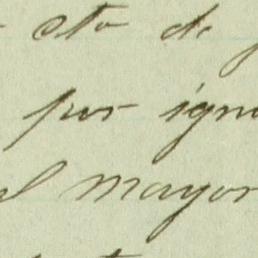 cto de
por igno
el mayor